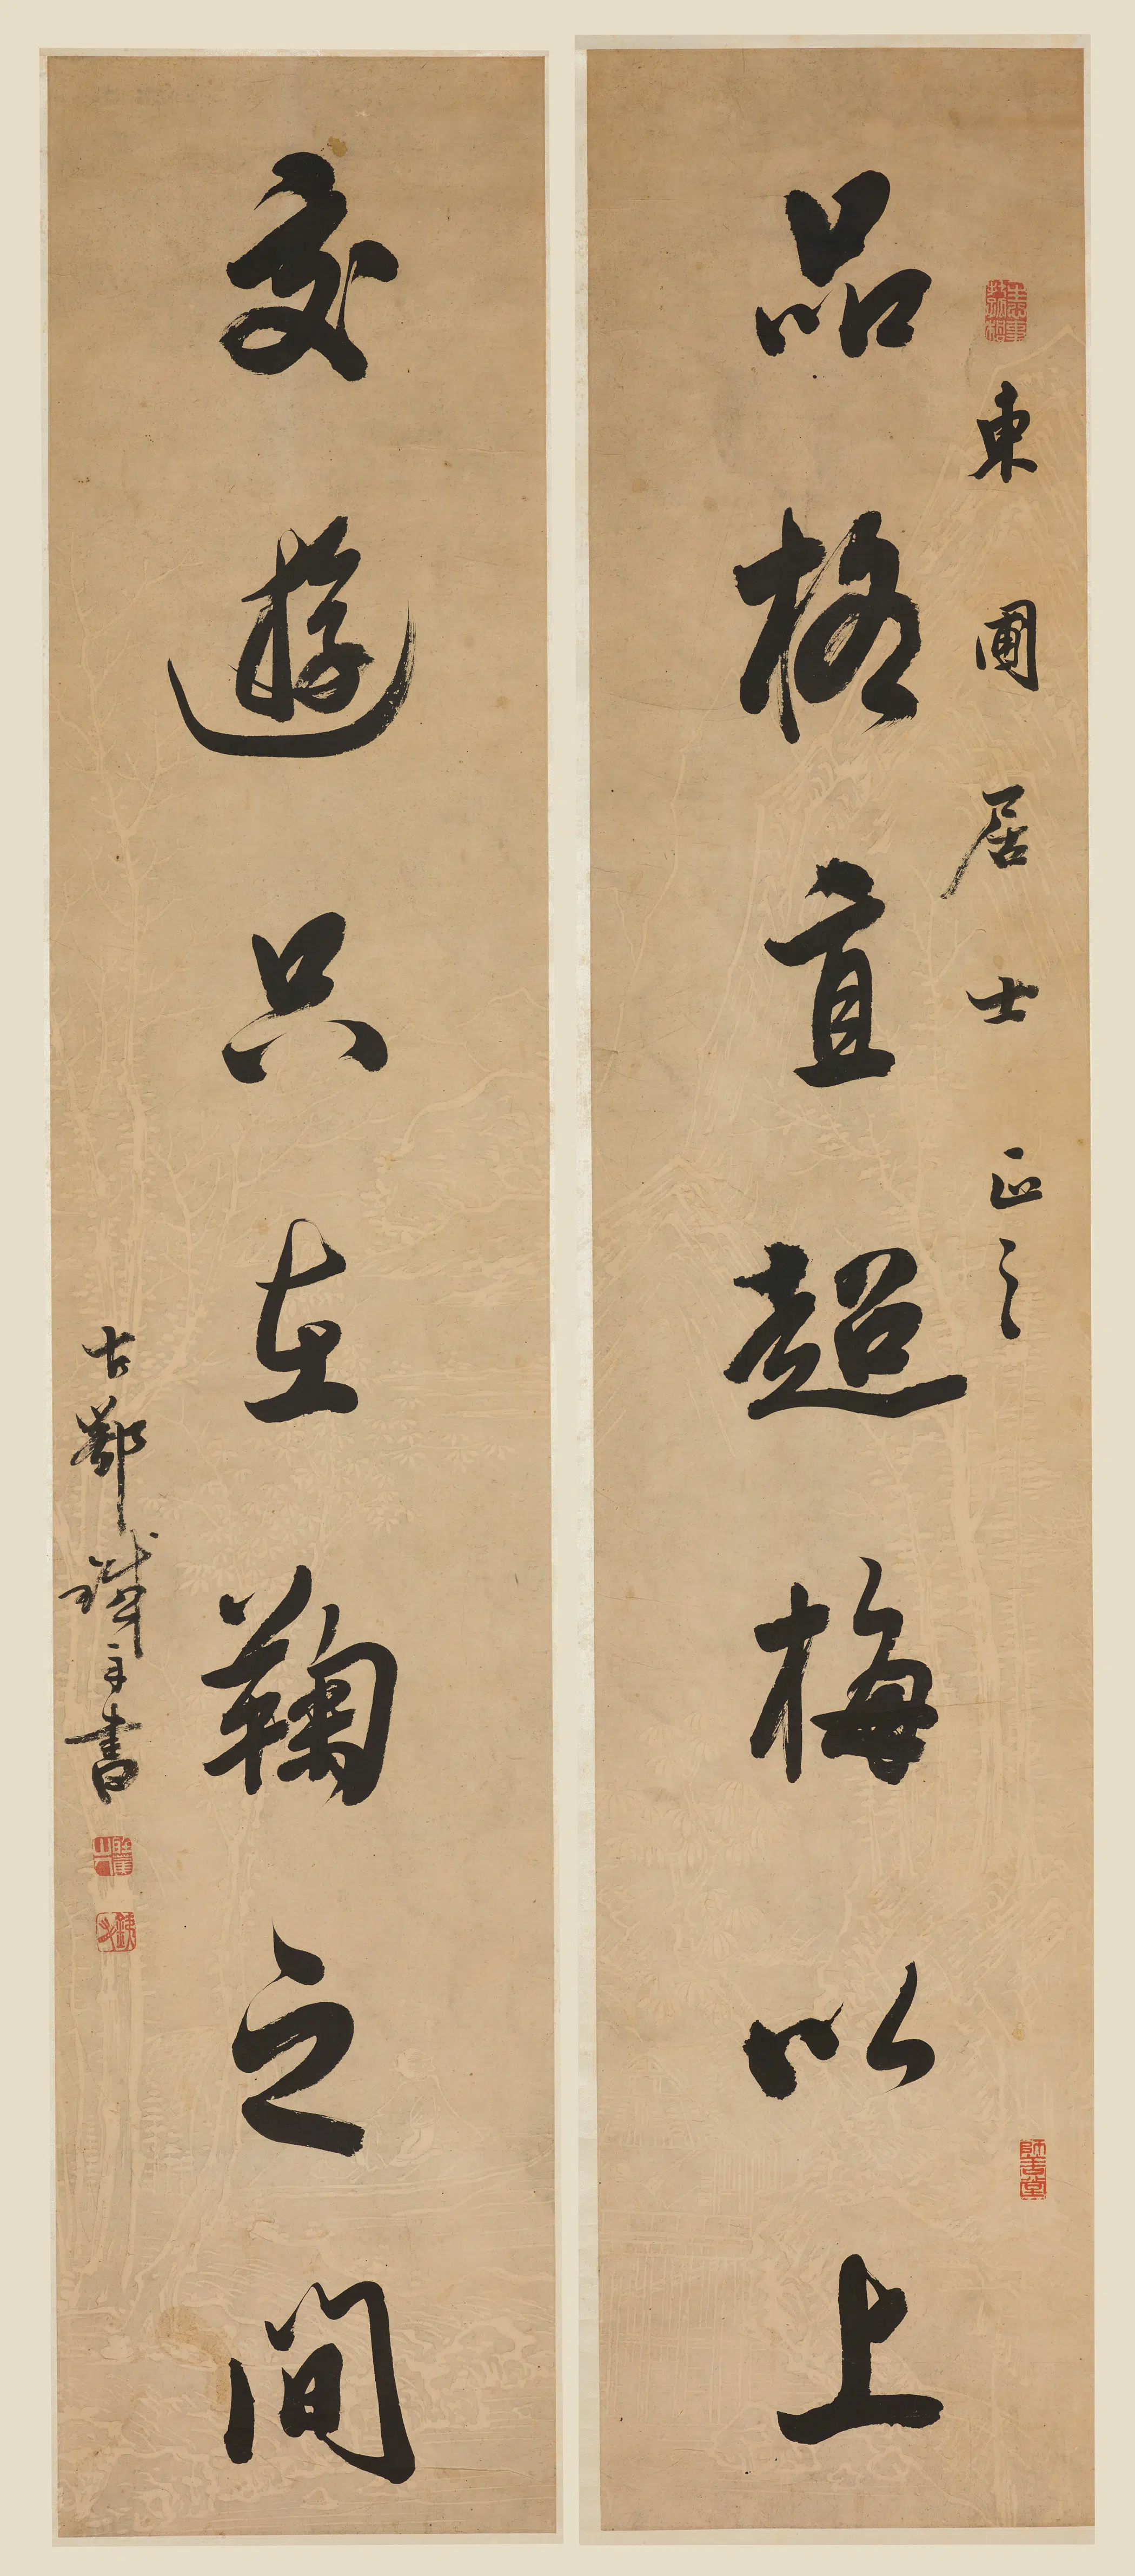 東圃居士正之
品格直超梅以上
交遊只在鞠之間
古鄞
手書
師善堂